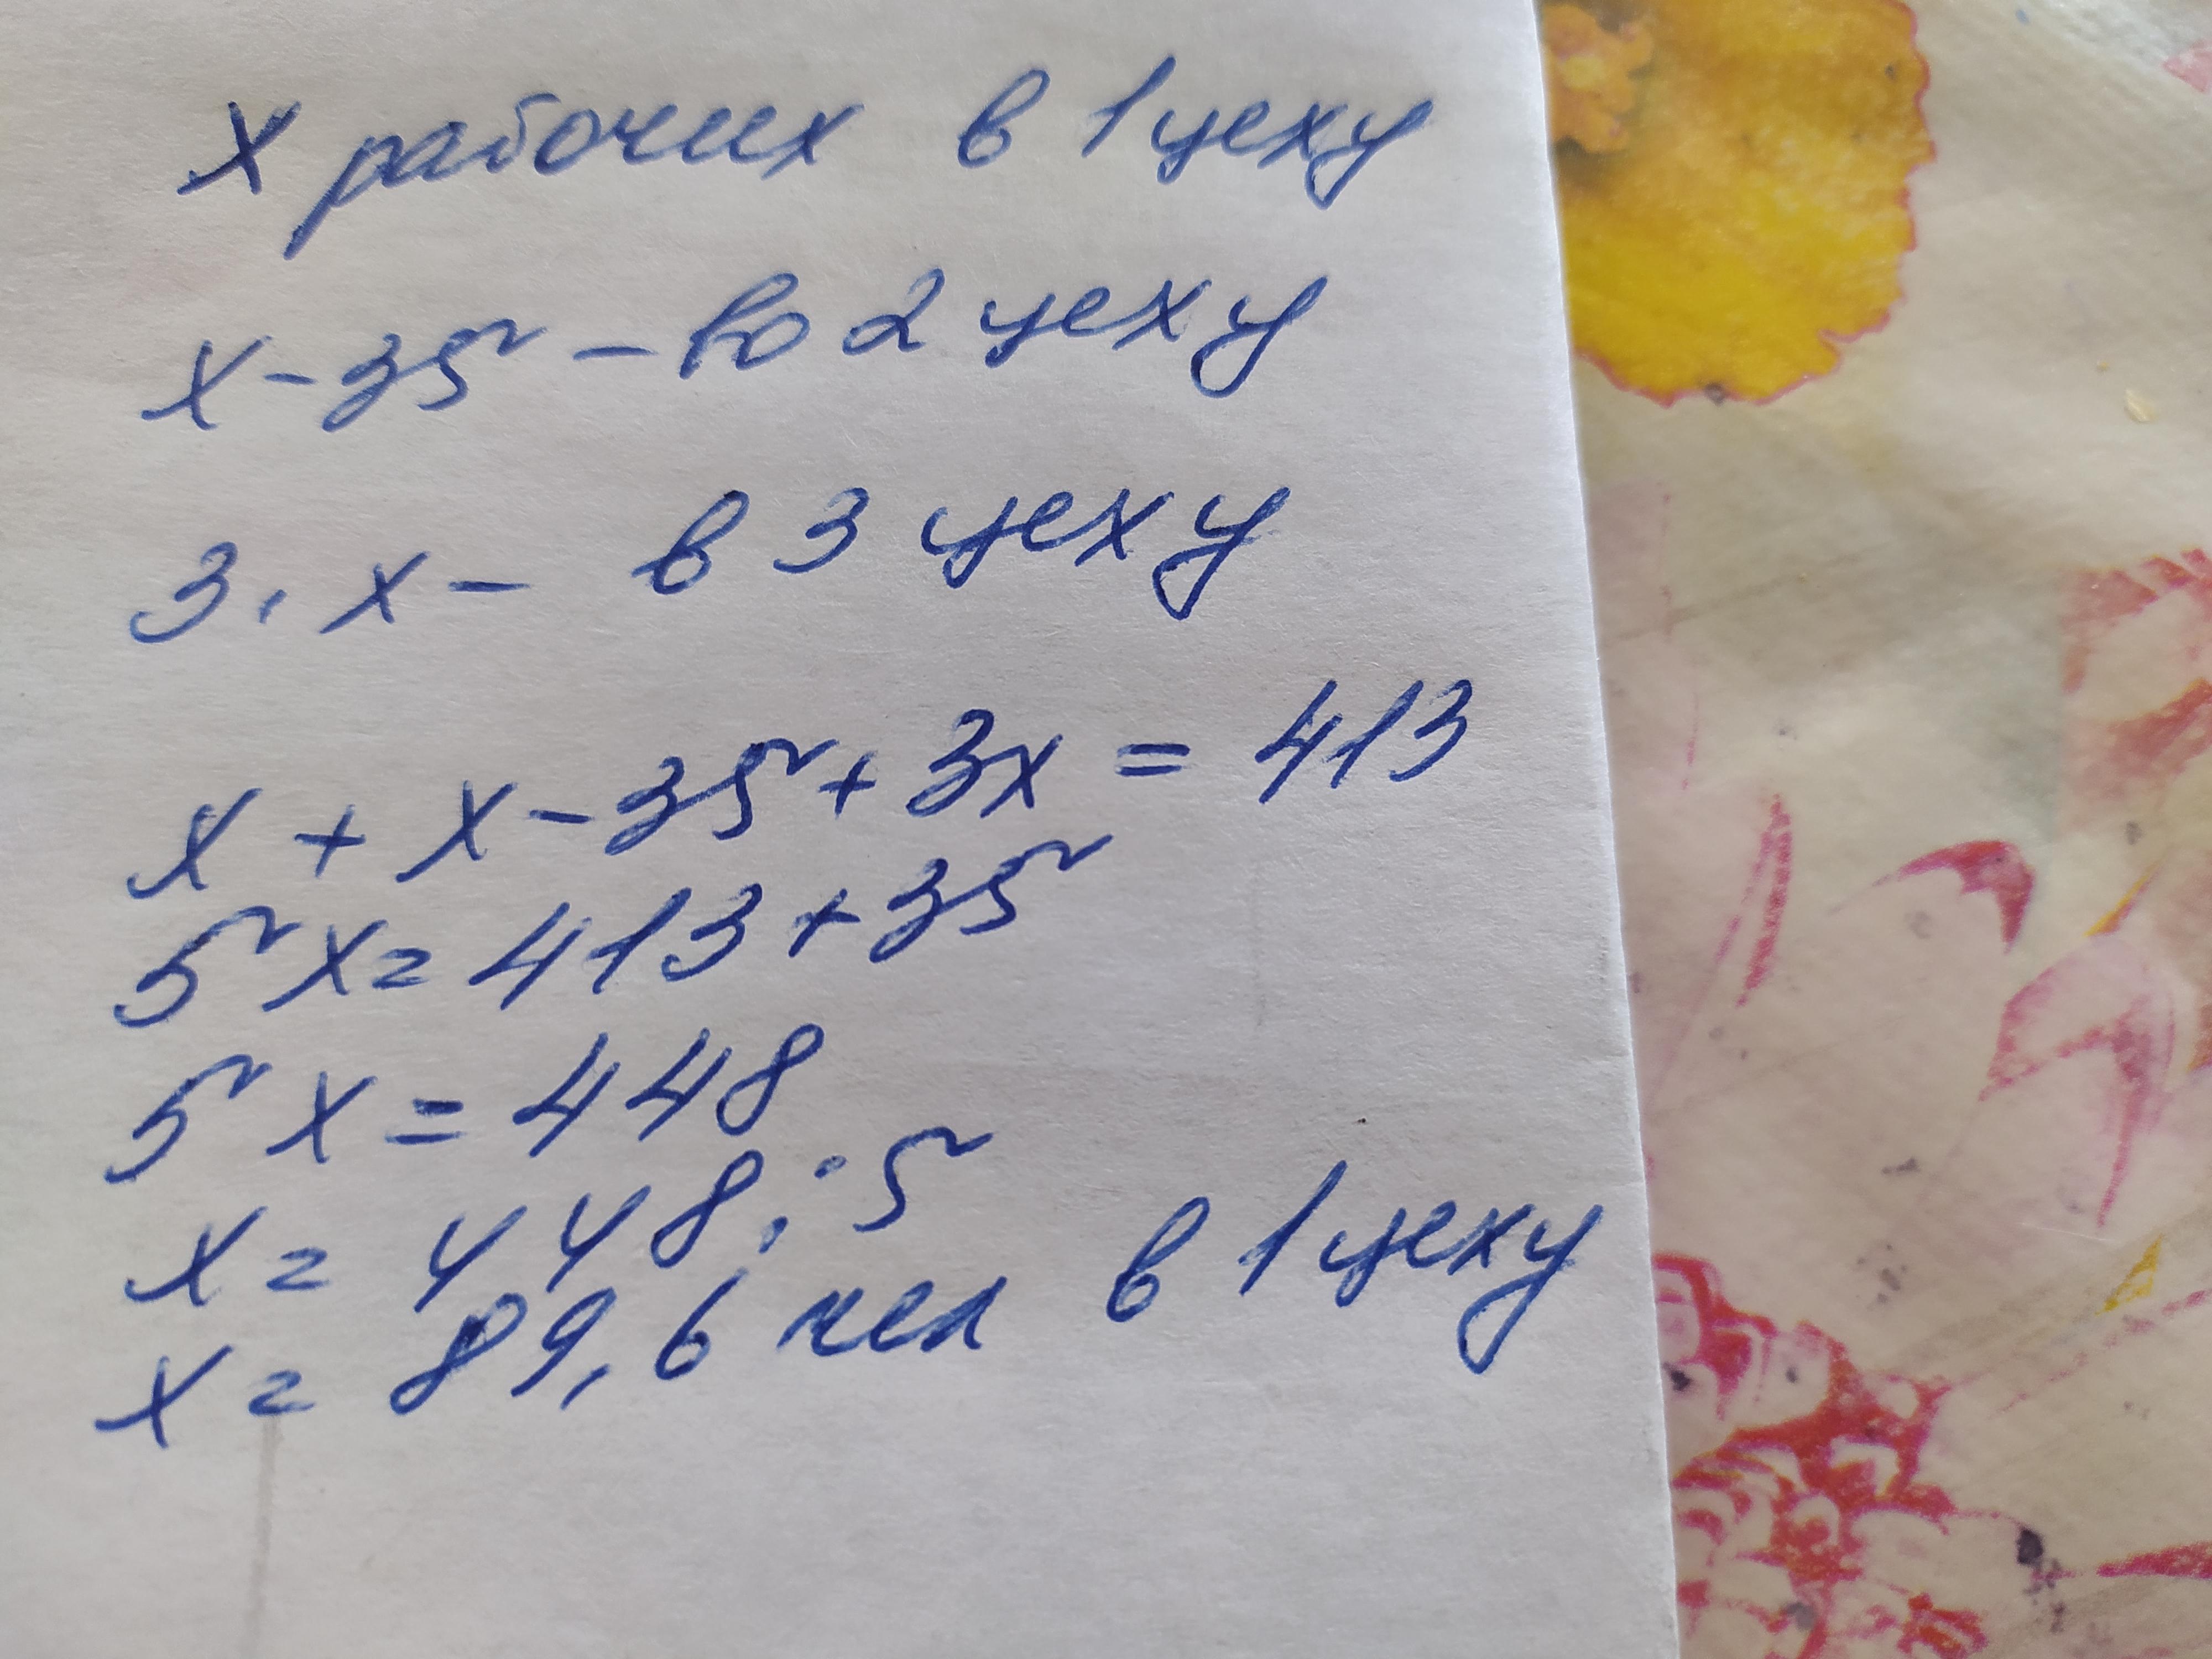 х рабочих в 1 цеху
х - 35 - во 2 цеху
3 . х - в 3 цеху
х + х - 35 + 3х = 413
5х = 413 + 35
5х = 448
х = 448 : 5
х = 89,6 чел в 1 цеху